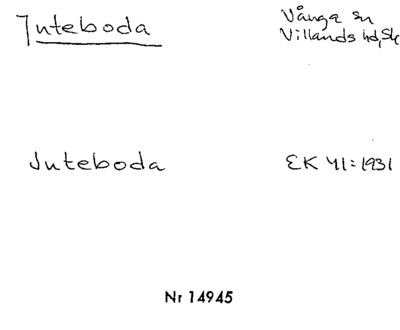 Juteboda
Vånga sn
Villands hd, Sk
Juteboda
EK 41:1931
Nr 14945